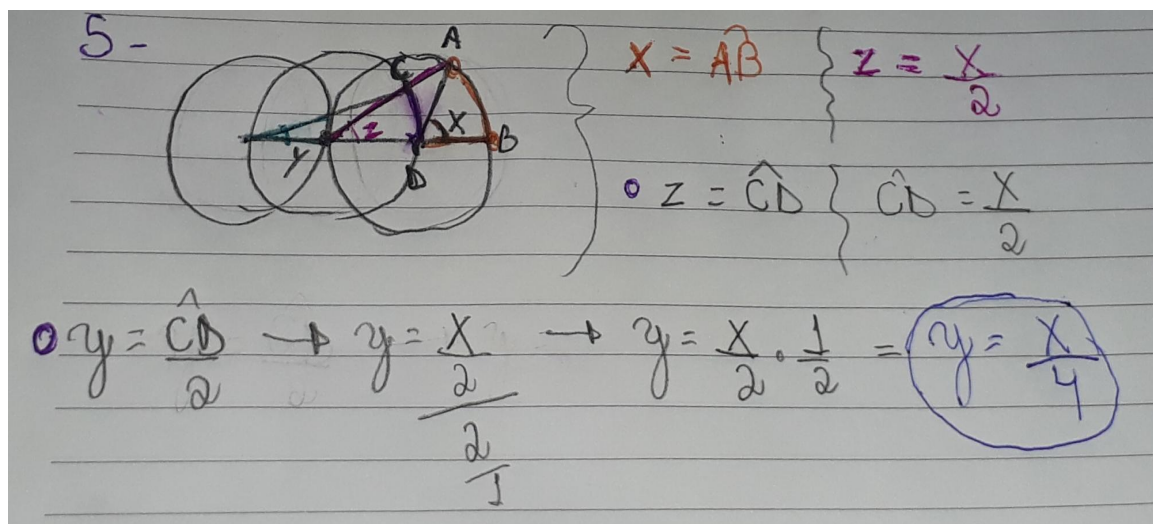 5-
A
C
z
X
B
Y
D
X = A͡B
z = X/2
z = ĈD
ĈD = X/2
y = ĈD/2 → y = X/2 / 2/1 → y = X/2 . 1/2 = y = X/4